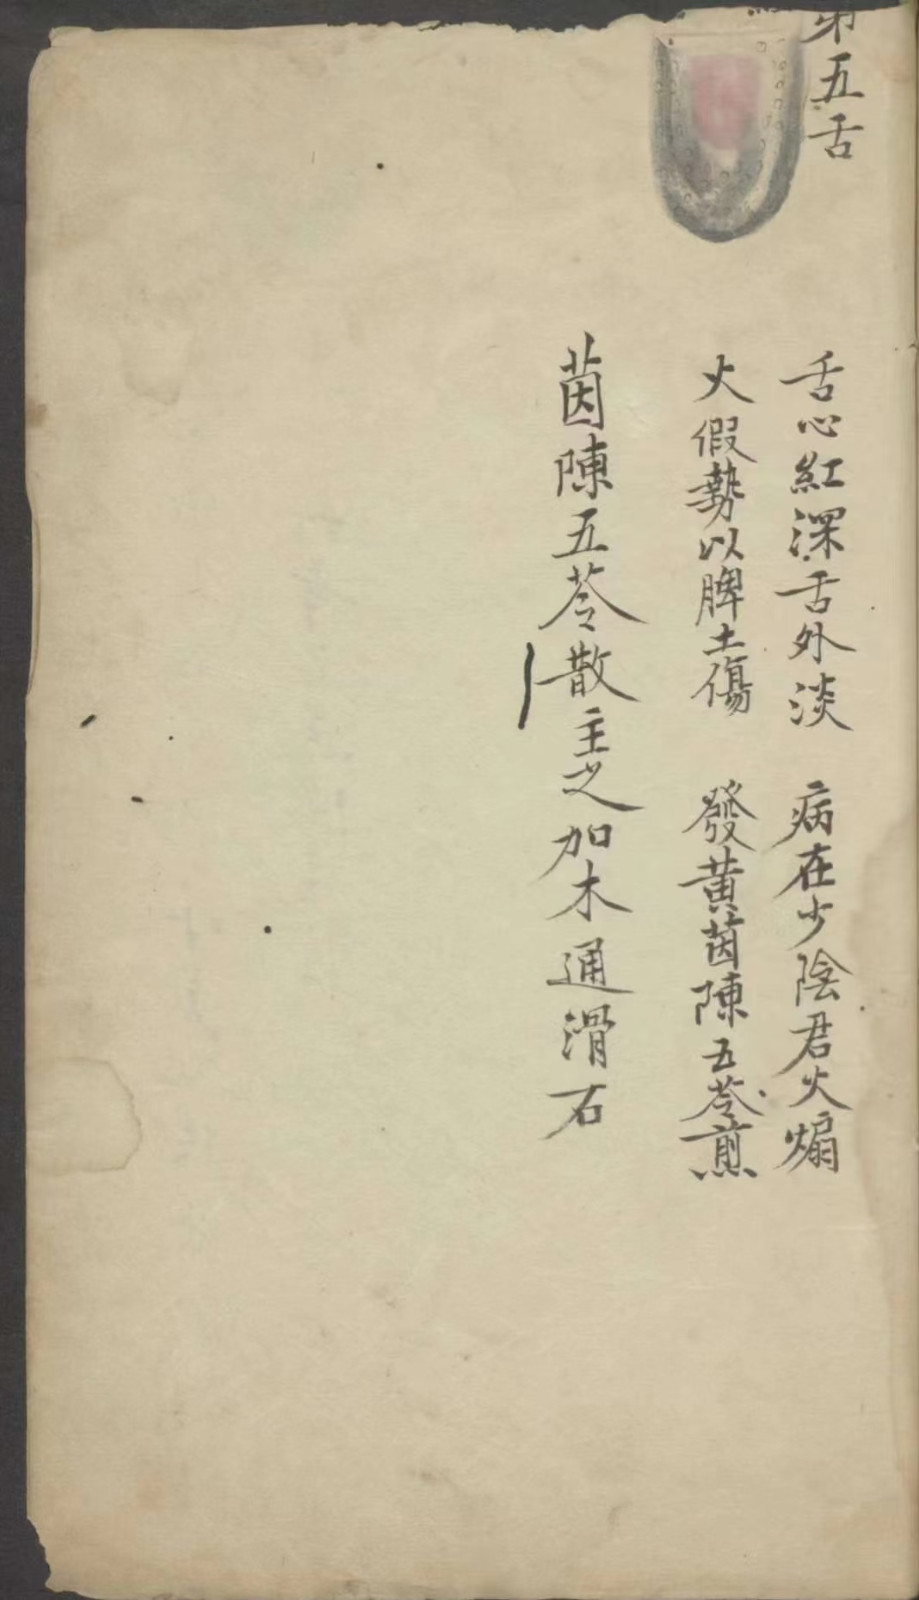 第五舌
舌心紅深舌外淡　病在少陰君火煽
火假勢以脾土傷　發黄茵陳五苓煎
茵陳五苓散主之加木通滑石